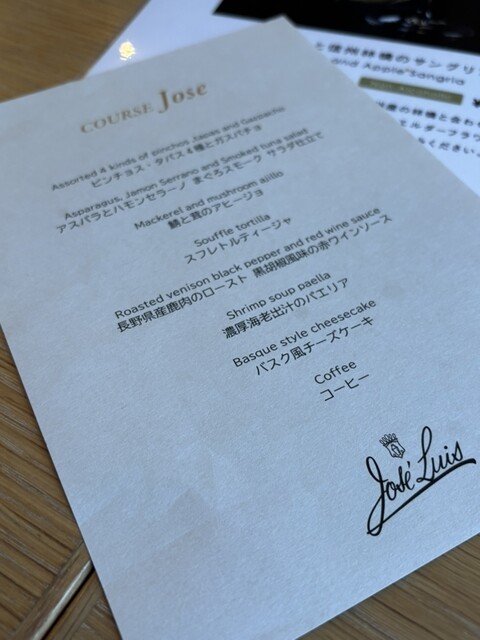 と信州林檎のサングリ
and Apple"sangria
COURSE Jose
Assorted 4 kinds of pinchos Tapas and Gazpacho
ピンチョス・タパス4種とガスパチョ
Asparagus, Jamon Serrano and Smoked tuna salad
アスパラとハモンセラーノ まぐろスモーク サラダ仕立て
Mackerel and mushroom ajillo
鯖と茸のアヒージョ
Souffle tortilla
スフレトルティージャ
Roasted venison black pepper and red wine sauce
長野県産鹿肉のロースト 黒胡椒風味の赤ワインソース
Shrimp soup paella
濃厚海老出汁のパエリア
Basque style cheesecake
バスク風チーズケーキ
Coffee
コーヒー
José Luis